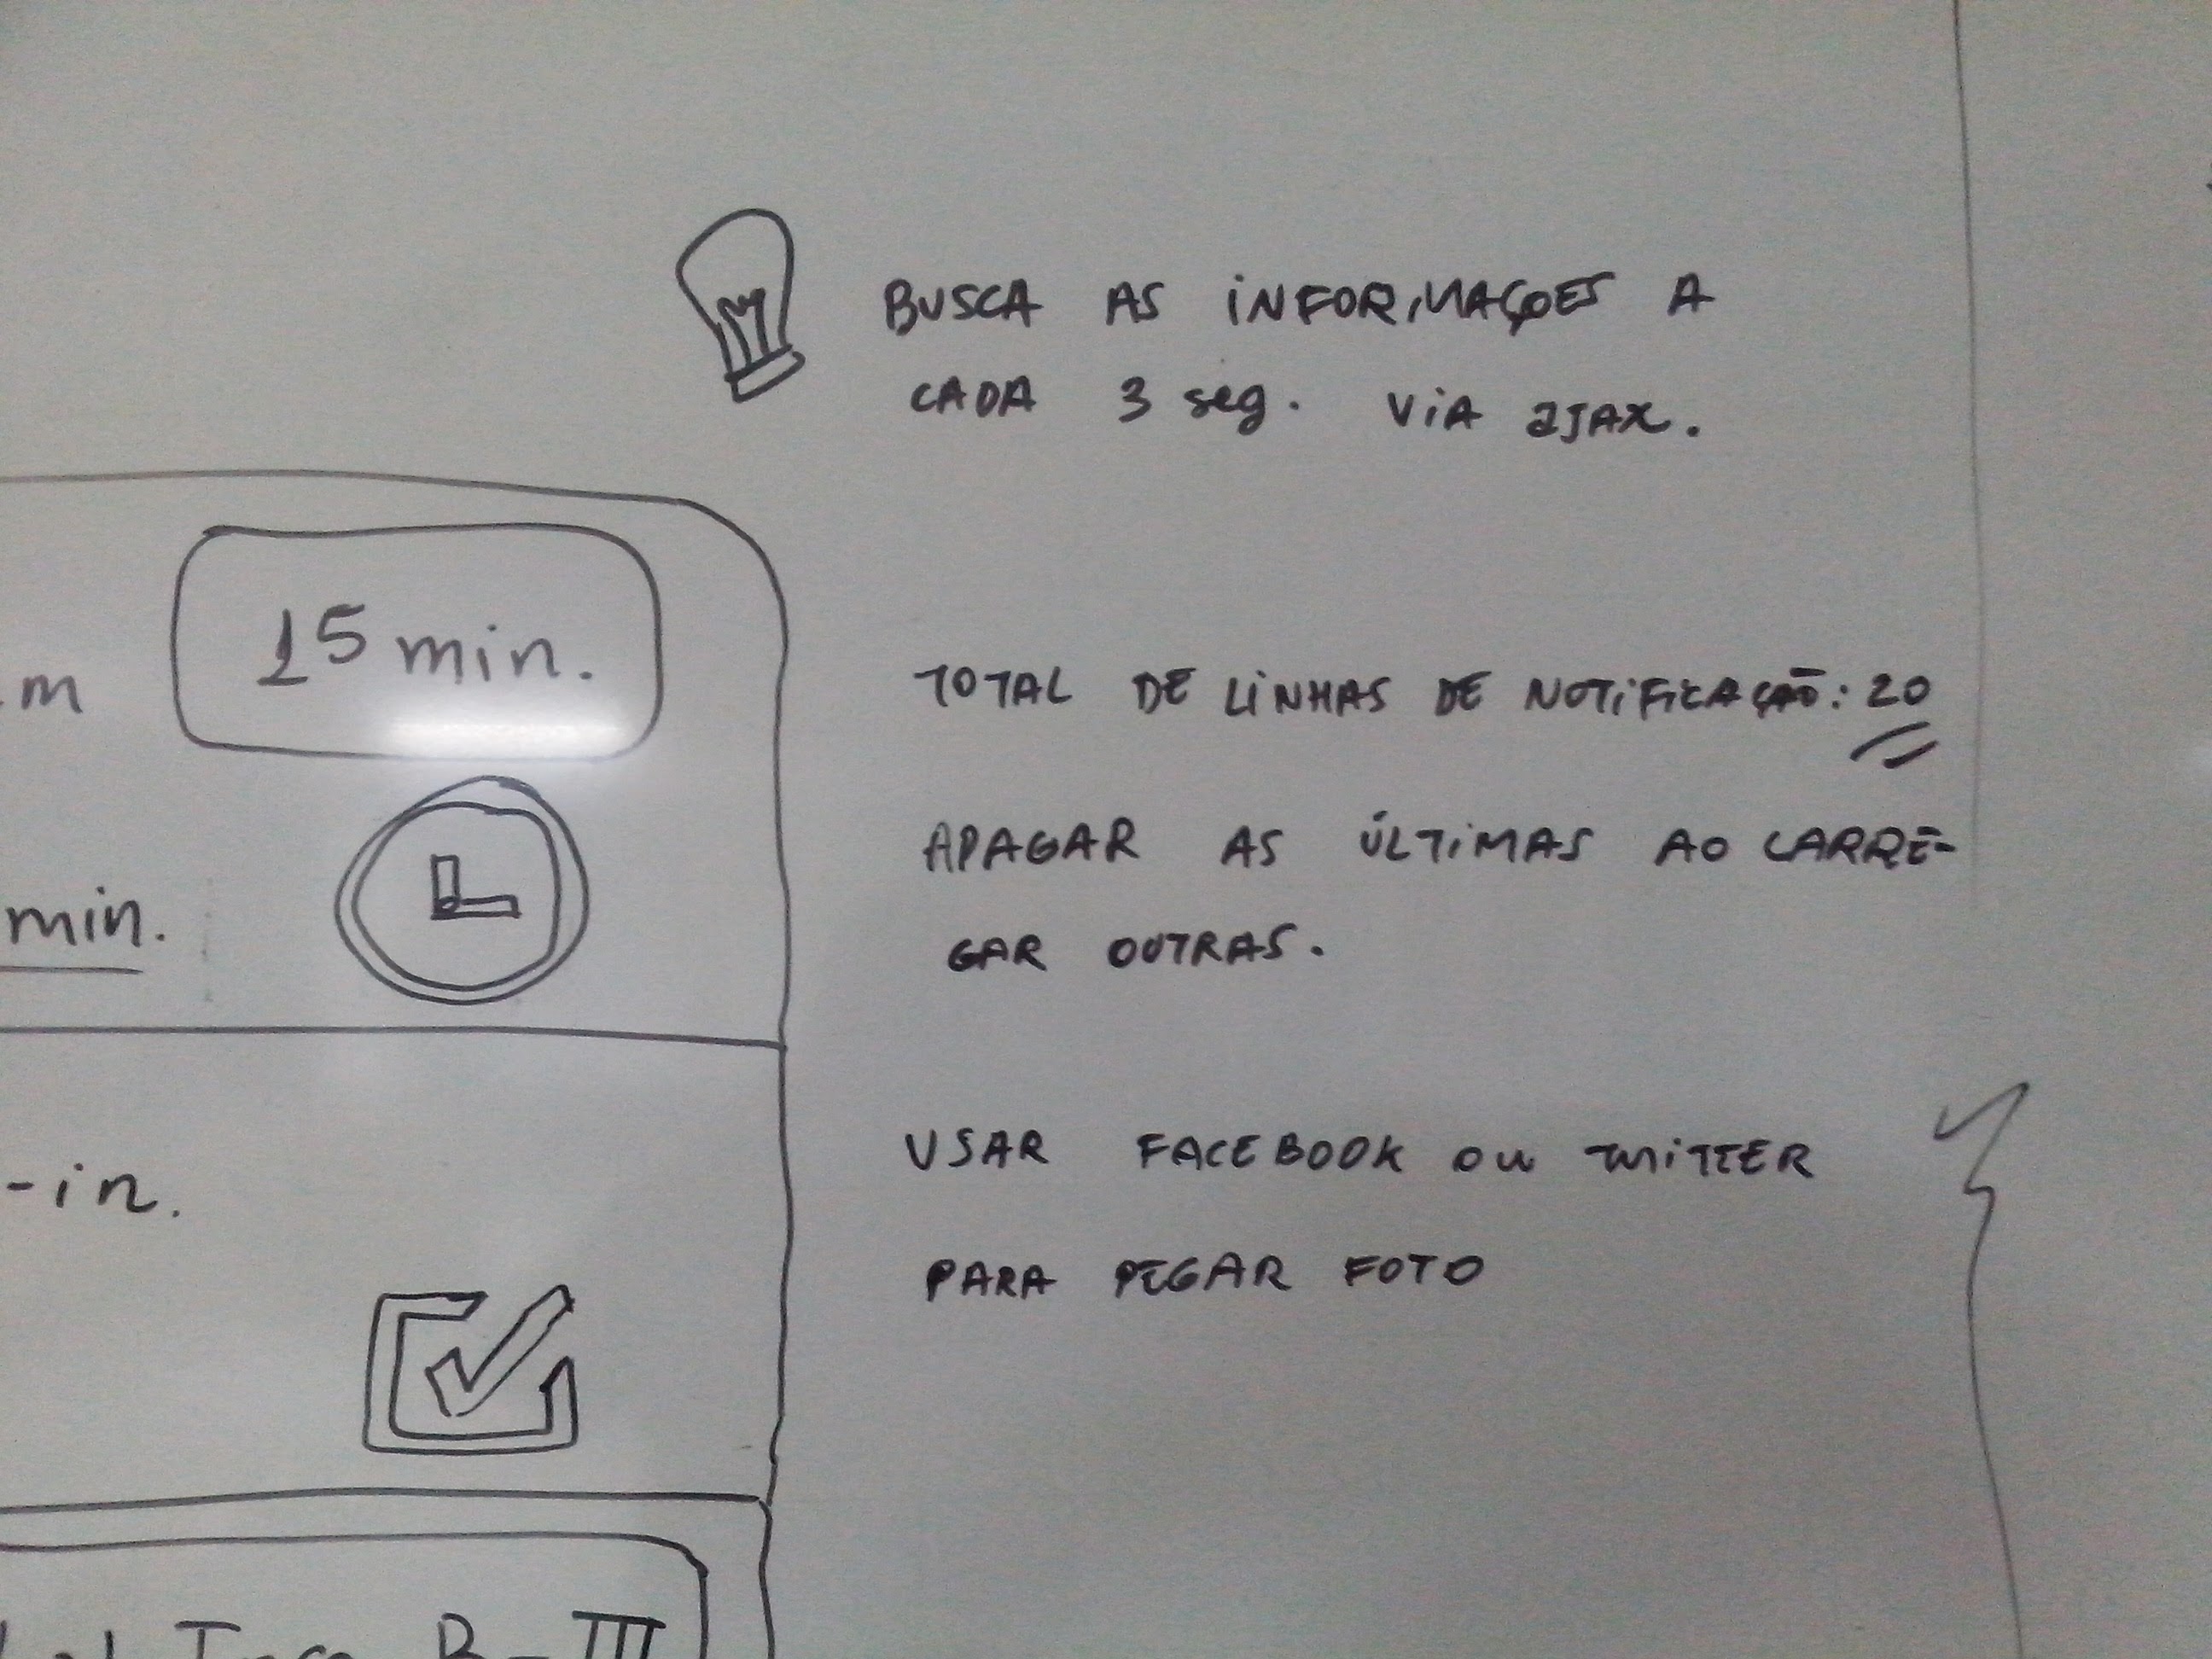 BUSCA AS INFORMAÇÕES A
CADA 3 seg. VIA AJAX.
15 min.
m
TOTAL DE LINHAS DE NOTIFICAÇÃO: 20
APAGAR AS ÚLTIMAS AO CARRE-
GAR OUTRAS.
min.
-in.
USAR FACEBOOK OU TWITTER
PARA PEGAR FOTO
B-III